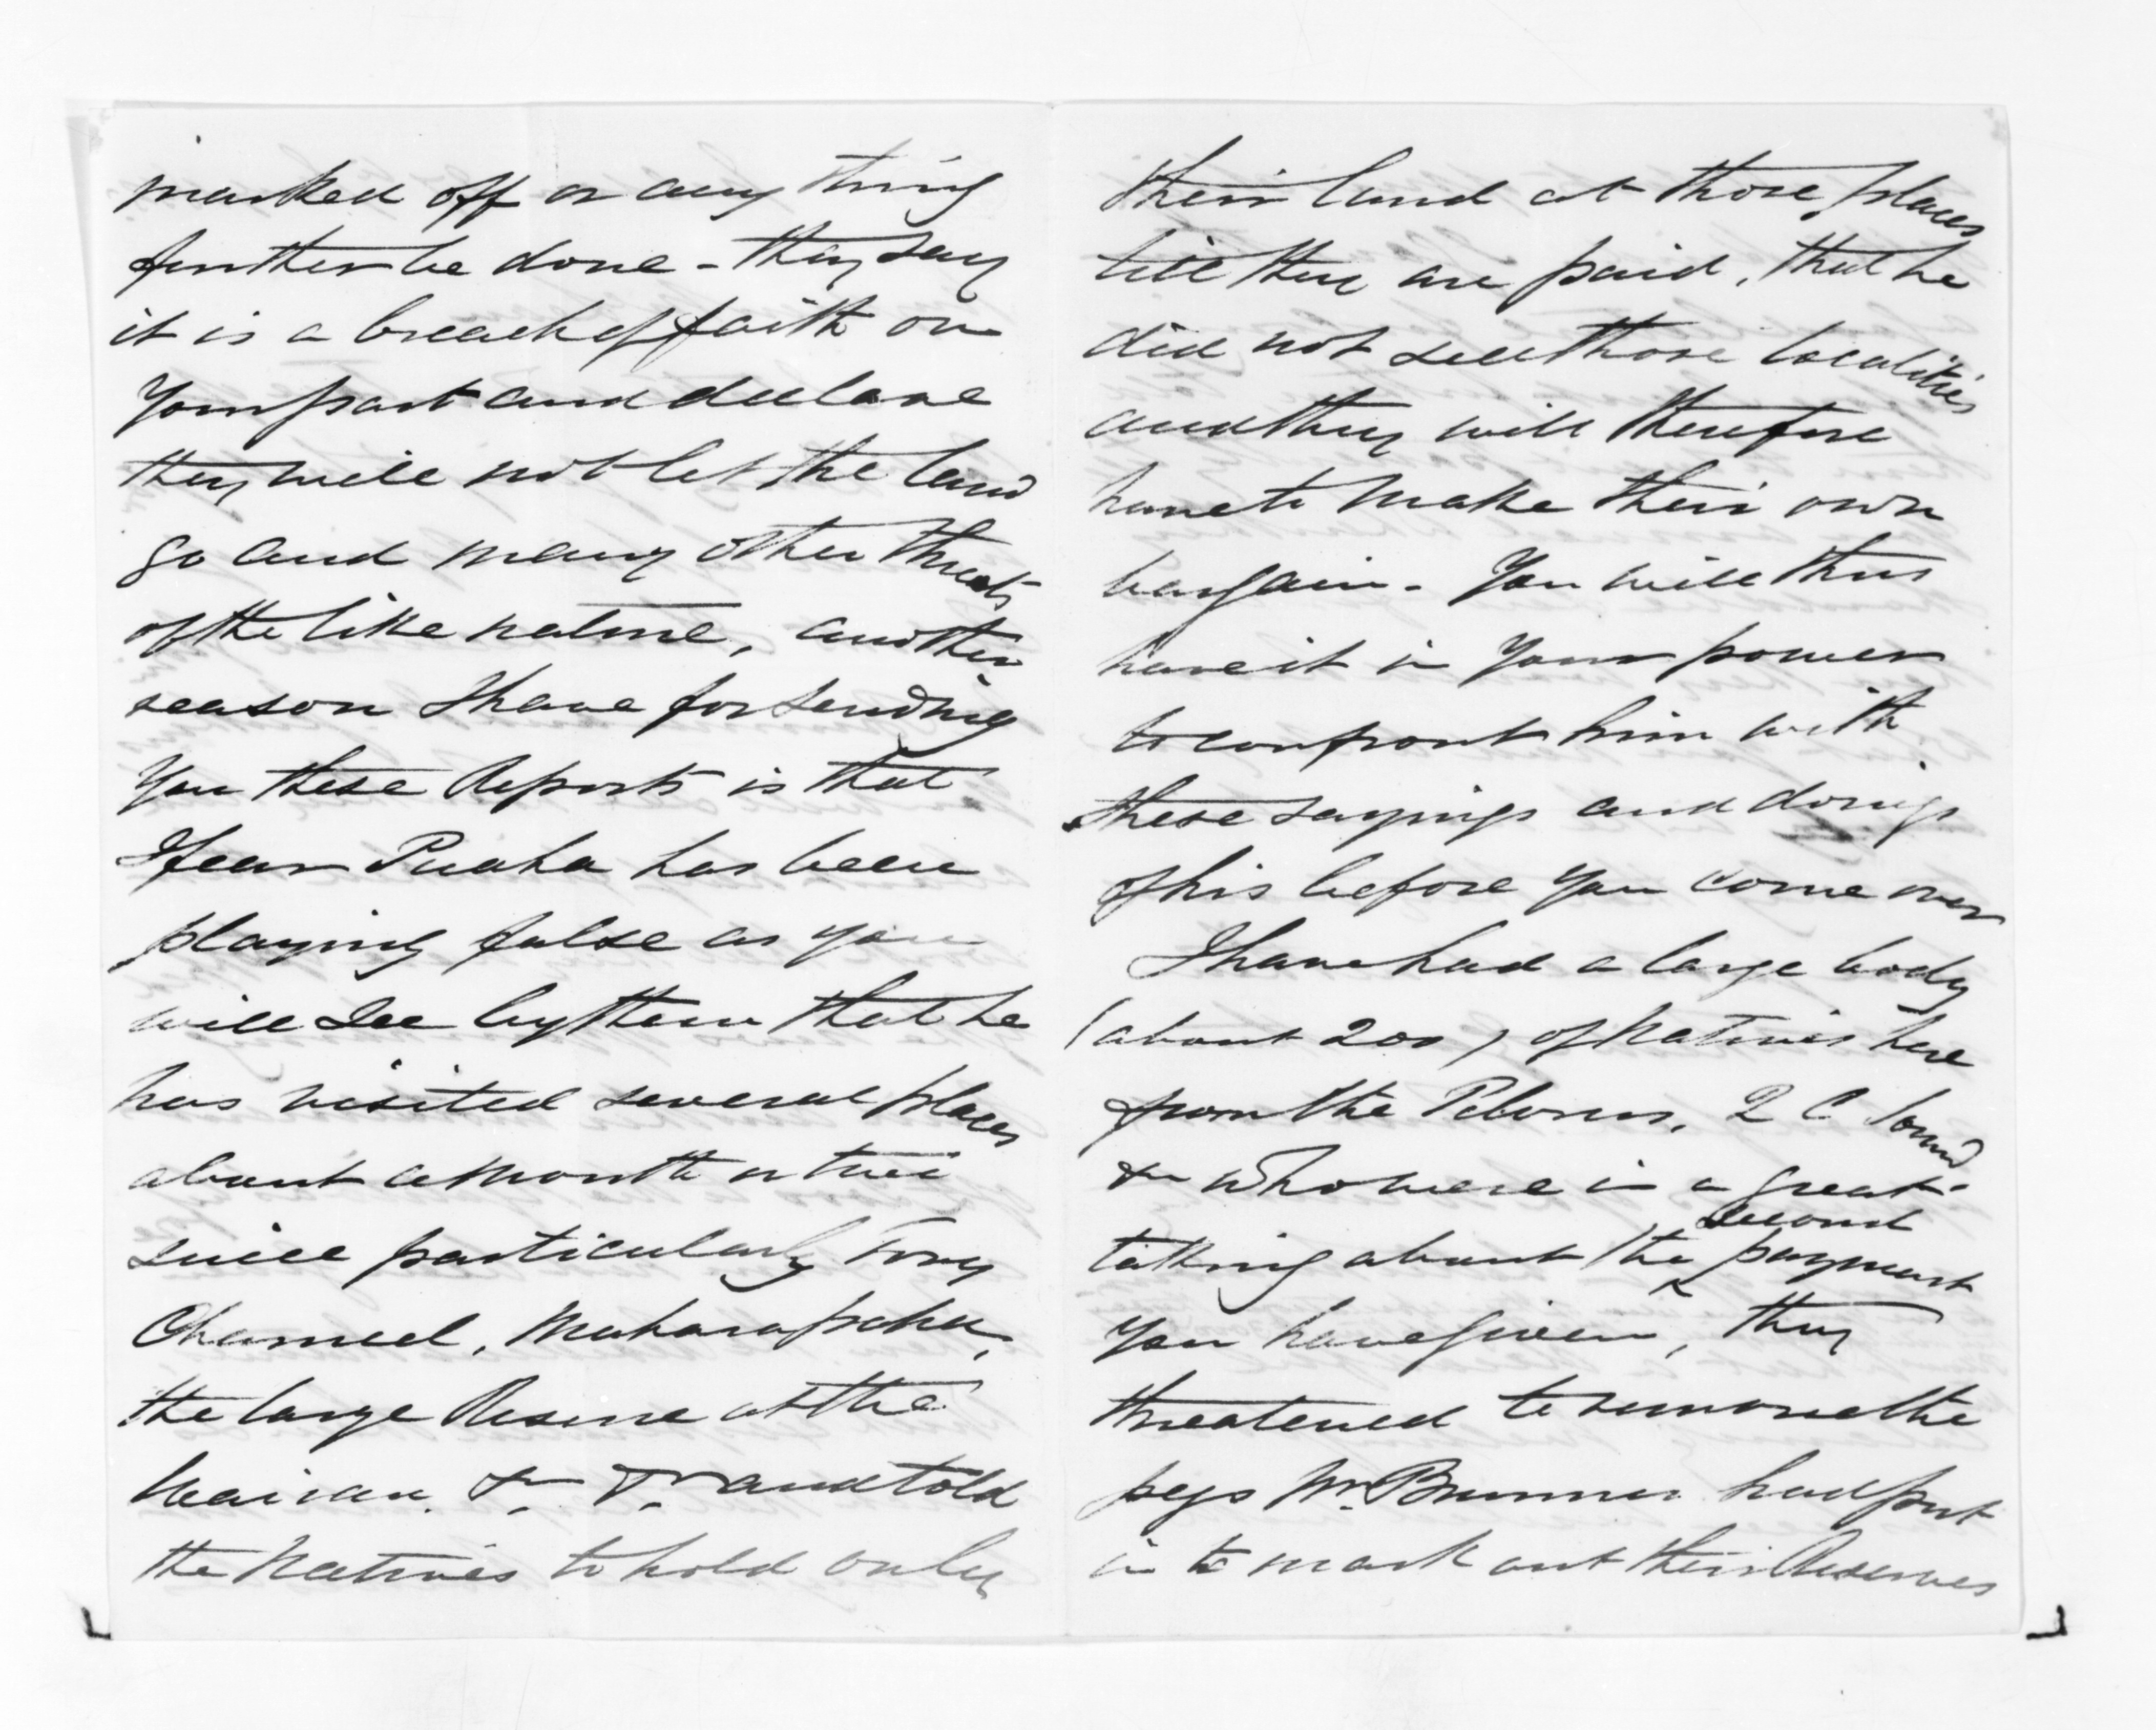 marked off or any thing
further be done - they say
it is a breach of faith on
Your part and declare
they will not let the land
go and many other threats
of the like nature, another
reason I have for sending
You these Reports is that
I fear Puaha has been
playing false as you
will see by them that he
has visited several places
about a month or two
since particularly Tory
Channel, Mahakapaka,
the large Reserve at the
Wairau &c &c and told
the Natives to hold only
their land at those places
till they are paid, that he
did not sell those localities
and they will therefore
have to make their own
bargain - You will thus
have it in Your power
to confront him with
these sayings and doings
of his before you come over
I have had a large body
(about 200) of Natives here
from the Pelorus, Q C Sound
&c who were in a great
talking about the second payment
You have given, they
threatened to remove the
pegs Mr. Brunner had put
in to mark out their Reserves